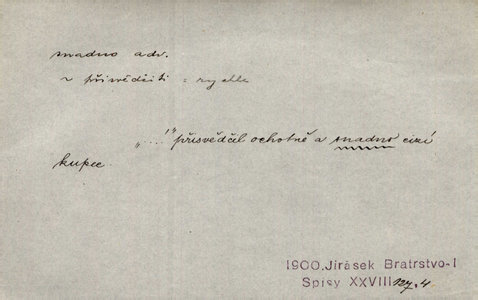 snadno adv.
~ přisvědčiti = rychle
„...!" přisvědčil ochotně a snadno cizí
kupec
1900. Jirásek Bratrstvo-I
Spisy XXVIII 127.4.